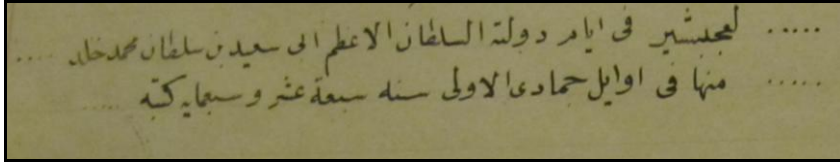 ..... لعجلشير فى ايام دولة السلطان الاعظم ابى سعيد بن سلطان محمد خلد ....
..... منها فى اوايل جمادى الاولى سنه سبعة عشر و سبعمايه كتبه .....